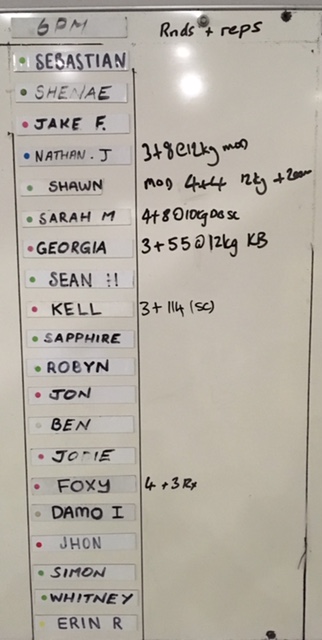 6PM Rnds + reps
SEBASTIAN
SHENAE
JAKE F.
NATHAN. J 3+8@12kg mod
SHAWN mod 4+4 12kg +200m
SARAH M 4+8@10kg DB sc
GEORGIA 3+55@12kg KB
SEAN H
KELL 3+114 (sc)
SAPPHIRE
ROBYN
JON
BEN
JODIE
FOXY 4+3 Rx
DAMO I
JHON
SIMON
WHITNEY
ERIN R